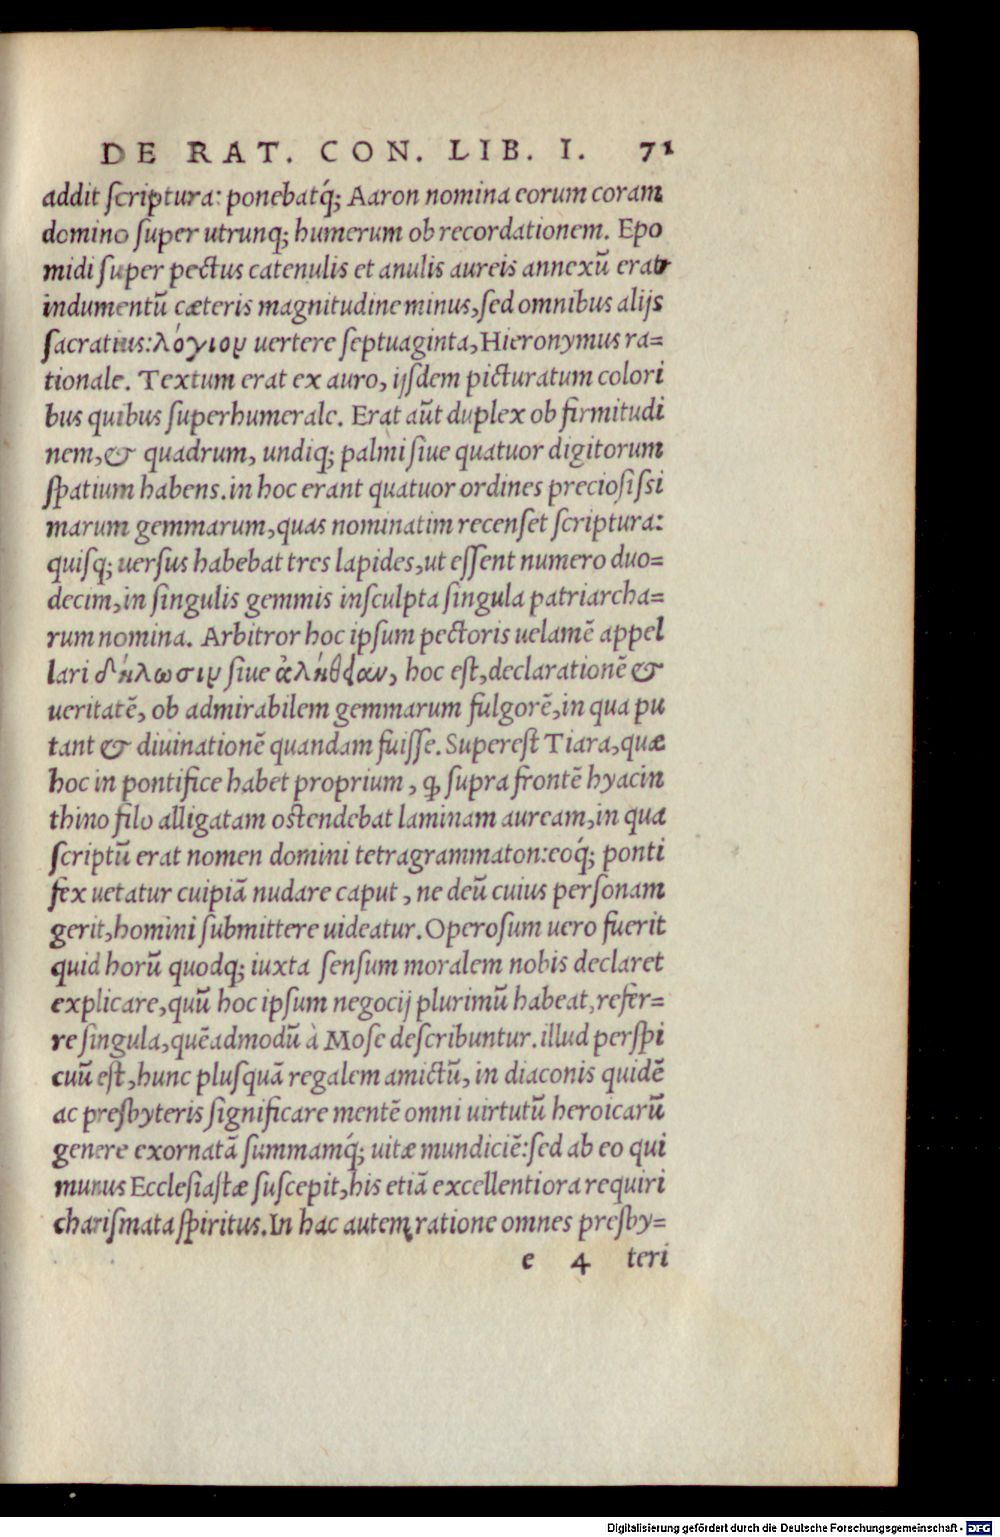 DE RAT. CON. LIB. I. 71
addit scriptura: ponebatq́; Aaron nomina eorum coram
domino super utrunq; humerum ob recordationem. Epo
midi super pectus catenulis et anulis aureis annexũ erat
indumentũ cæteris magnitudine minus, sed omnibus alijs
sacratius: λόγιον uertere septuaginta, Hieronymus ra=
tionale. Textum erat ex auro, ijsdem picturatum colori
bus quibus superhumerale. Erat aũt duplex ob firmitudi
nem, & quadrum, undiq; palmi siue quatuor digitorum
spatium habens. in hoc erant quatuor ordines preciosissi
marum gemmarum, quas nominatim recenset scriptura:
quisq; uersus habebat tres lapides, ut essent numero duo=
decim, in singulis gemmis insculpta singula patriarcha=
rum nomina. Arbitror hoc ipsum pectoris uelamẽ appel
lari δήλωσιν siue ἀλήθειαν, hoc est, declarationẽ &
ueritatẽ, ob admirabilem gemmarum fulgorẽ, in qua pu
tant & diuinationẽ quandam fuisse. Superest Tiara, quæ
hoc in pontifice habet proprium, ꝙ supra frontẽ hyacin
thino filo alligatam ostendebat laminam auream, in qua
scriptũ erat nomen domini tetragrammaton: eoq́; ponti
fex uetatur cuipiã nudare caput, ne deũ cuius personam
gerit, homini submittere uideatur. Operosum uero fuerit
quid horũ quodq; iuxta sensum moralem nobis declaret
explicare, quũ hoc ipsum negocij plurimũ habeat, refer=
re singula, quẽadmodũ à Mose describuntur. illud perspi
cuũ est, hunc plusquã regalem amictũ, in diaconis quidẽ
ac presbyteris significare mentẽ omni uirtutũ heroicarũ
genere exornatã summamq́; uitæ mundiciẽ: sed ab eo qui
munus Ecclesiastæ suscepit, his etiã excellentiora requiri
charismata spiritus. In hac autem ratione omnes presby=
e 4 teri
Digitalisierung gefördert durch die Deutsche Forschungsgemeinschaft - DFG